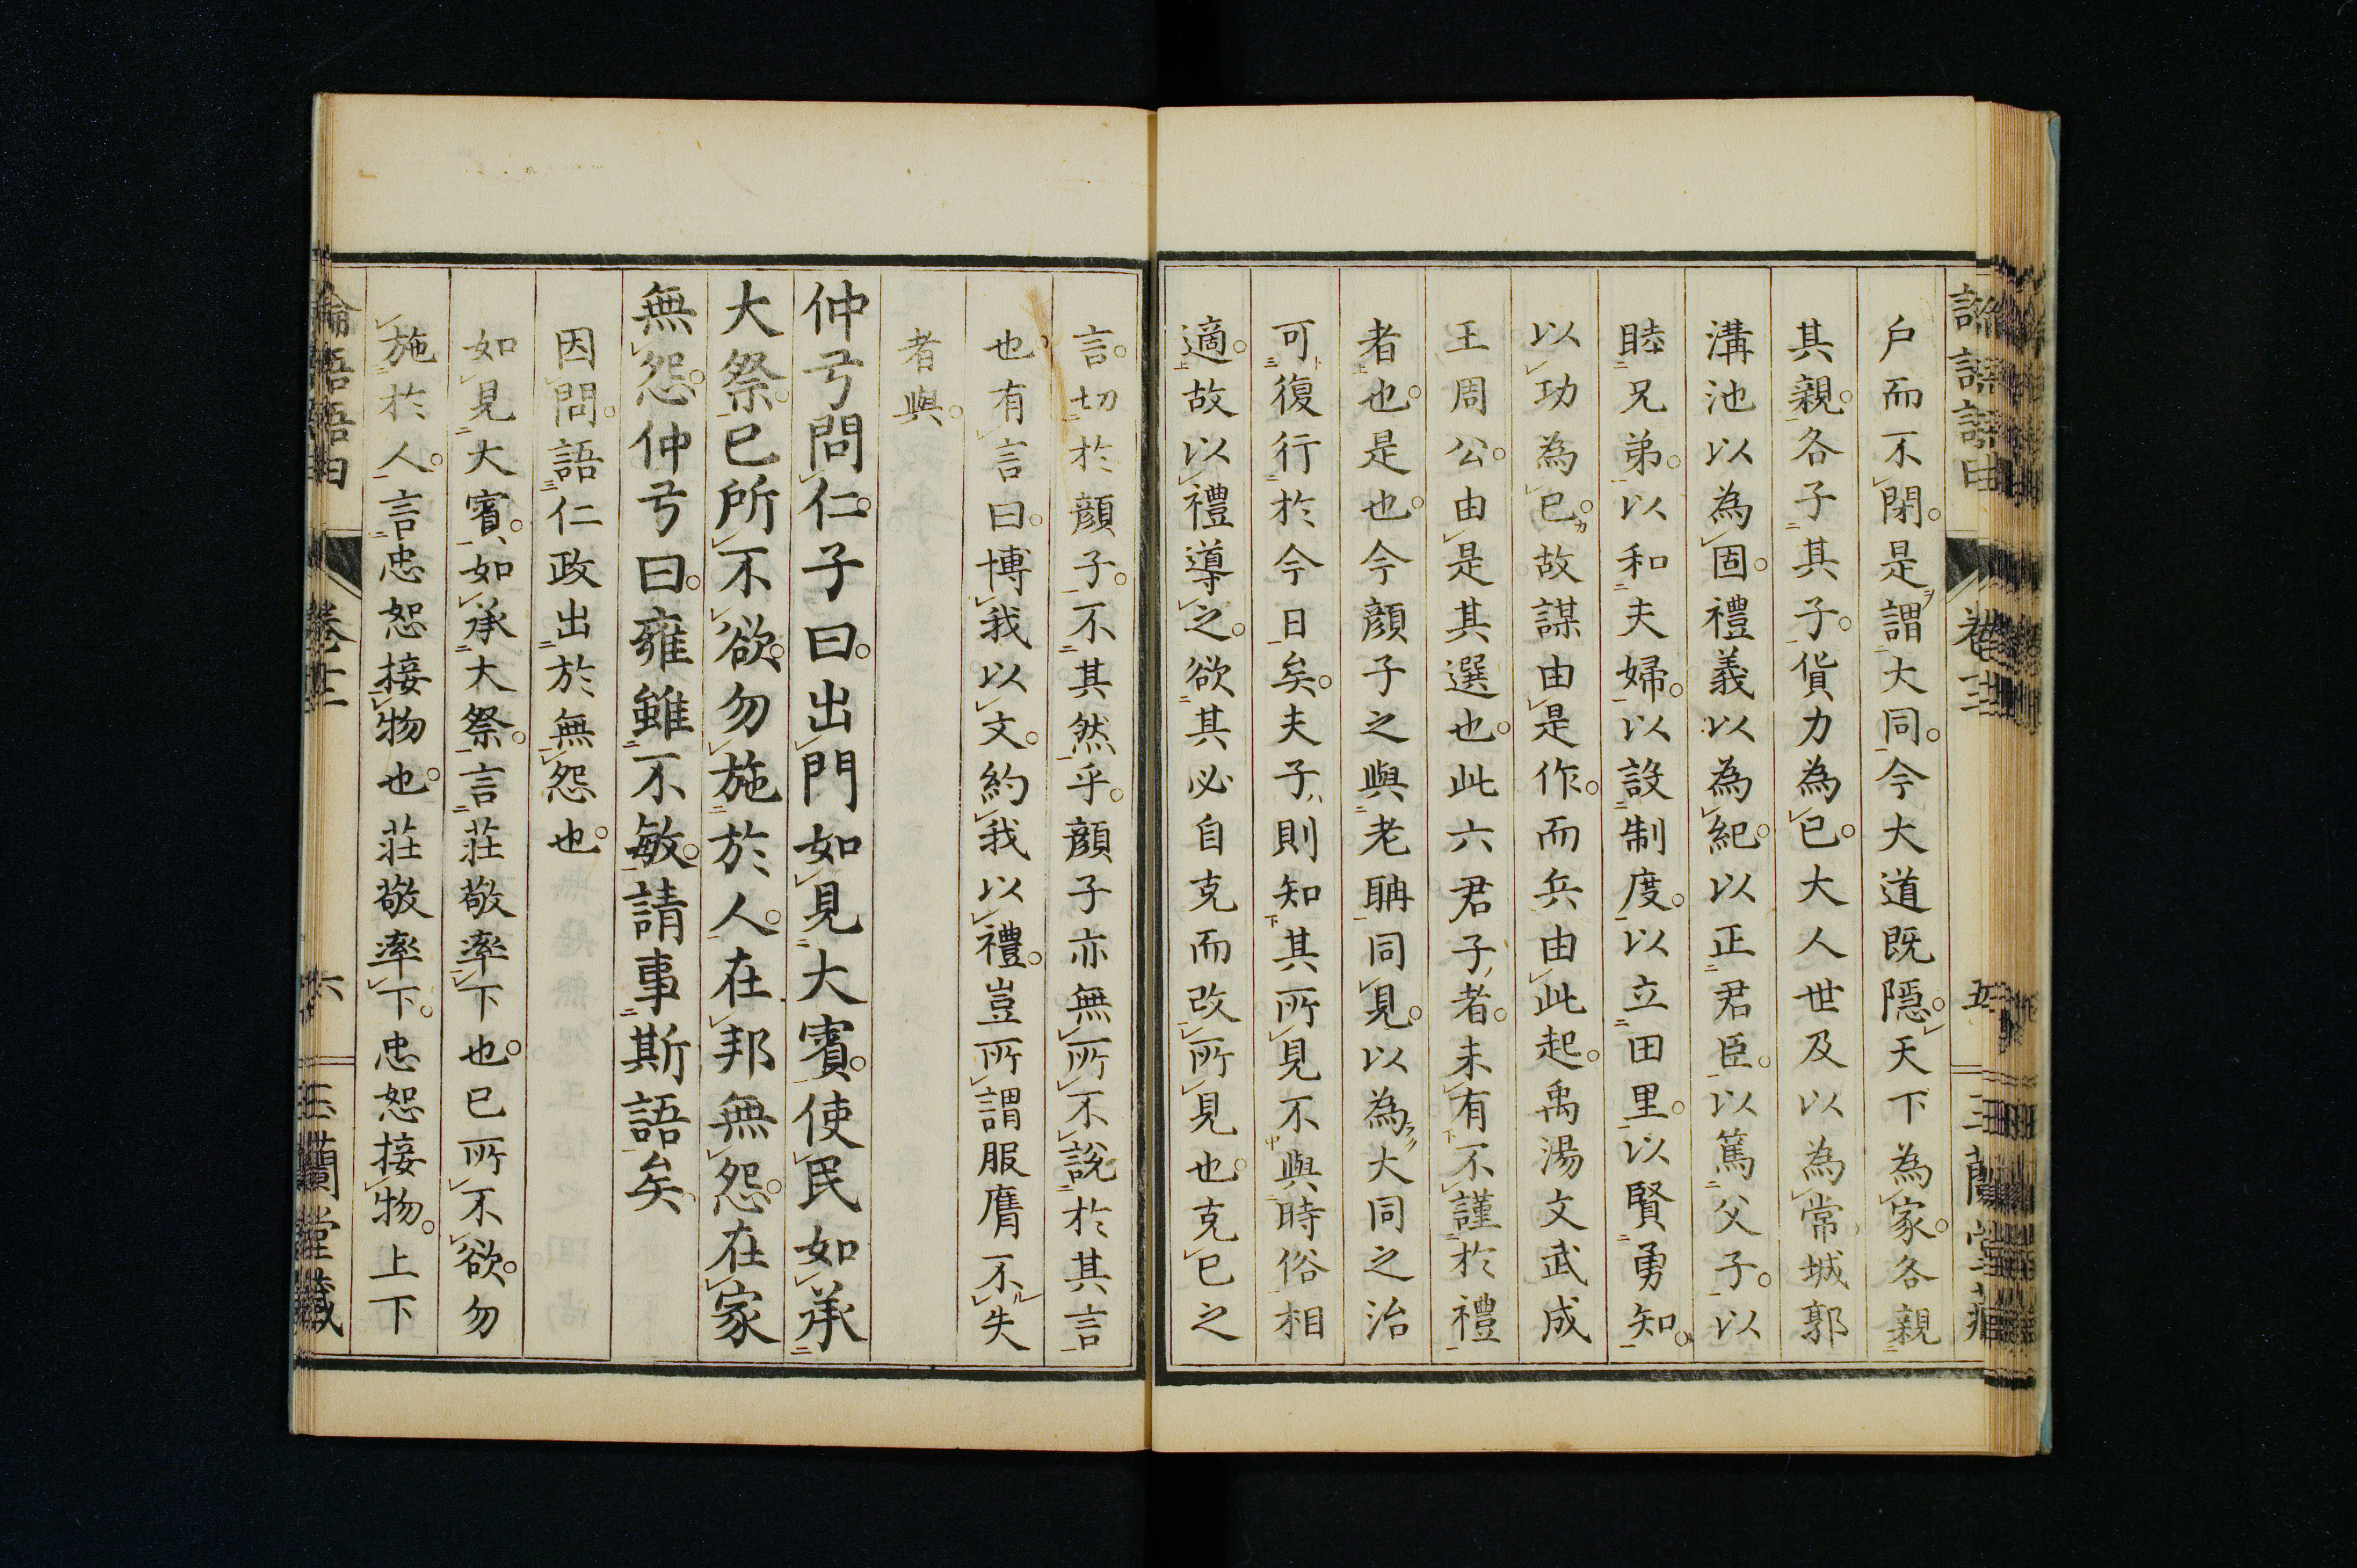 戶而不閉是謂大同今大道既隱天下為家各親
其親各子其子貨力為已大人世及以為常城郭
溝池以為固禮義以為紀以正君臣以篤父子以
睦兄弟以和夫婦以設制度以立田里以賢勇知
以功為已故謀由是作而兵由此起禹湯文武成
王周公由是其選也此六君子者未有不謹於禮
者也是也今顏子之與老聃同見以為大同之治
可復行於今日矣夫子則知其所見不與時俗相
適故以禮導之欲其必自克而改所見也克已之
言切於顏子不其然乎顏子亦無所不說於其言
也有言曰博我以文約我以禮豈所謂服膺不失
者與
仲弓問仁子曰出門如見大賓使民如承
大祭已所不欲勿施於人在邦無怨在家
無怨仲弓曰雍雖不敏請事斯語矣
因問語仁政出於無怨也
如見大賓如承大祭言莊敬率下也已所不欲勿
施於人言忠恕接物也莊敬率下忠恕接物上下
論語語由 卷十二 六 三蘭堂藏